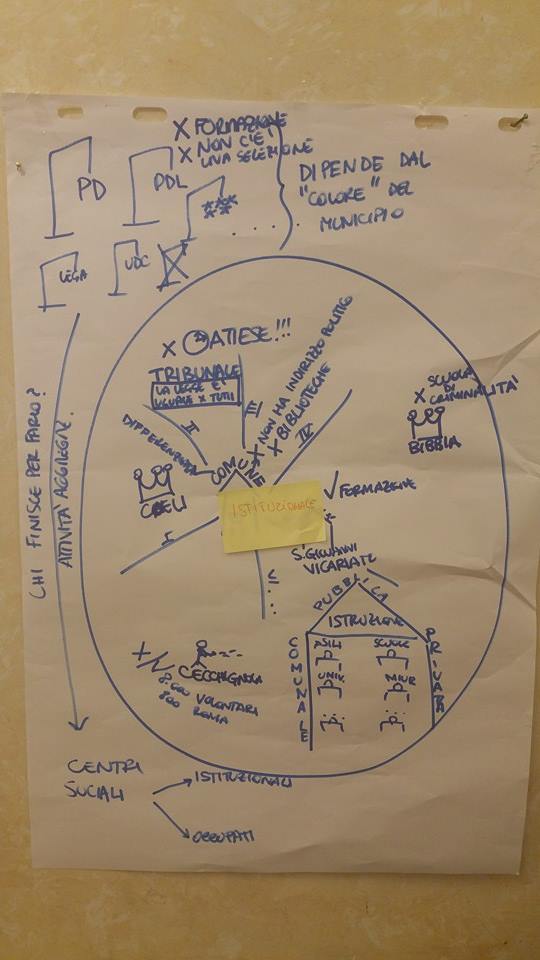 X FORMAZIONE
X NON C'È
UNA SELEZIONE
PD
PDL
***
**
. . . . .
DIPENDE DAL
"COLORE" DEL
MUNICIPIO
LEGA
UDC
CHI FINISCE PER FARLO?
ATTIVITÀ AGGREG.NE
X ATIESE!!!
TRIBUNALE
LA LEGGE È
UGUALE X TUTTI
II
III
X NON HA INDIRIZZO POLITICO
X BIBLIOTECHE
IV
X SCUOLA
DI
CRIMINALITÀ
BIBBIA
COMUNE
CAELI
I
ISTITUZIONALE
√ FORMAZIONE
S. GIOVANNI
VICARIATO
V
. . .
PUBBLICA
ISTRUZIONE
COMUNALE
PRIVATA
ASILI
SCUOLE
UNIV.
MIUR
CECCHIGNOLA
8.000 VOLONTARI
800 ROMA
CENTRI
SOCIALI
ISTITUZIONALI
OCCUPATI